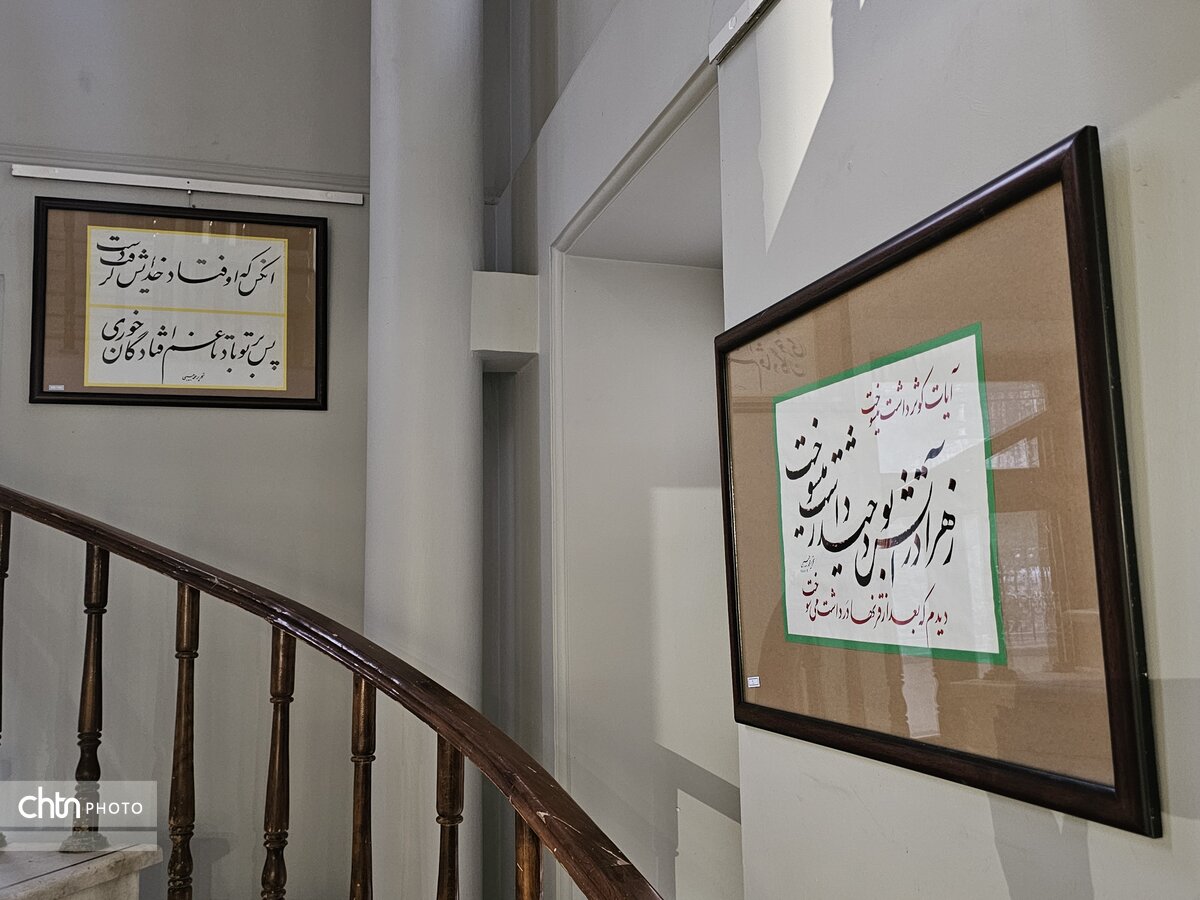 آنکس که اوفتاد خدایش گرفت دست
پس بر تو باد تا غم افتادگان خوری
آیات کوثر داشت میسوخت
زهرا در آتش بود حیدر داشت میسوخت
دیدم که بعد از قرنها در داشت می سوخت
chtn PHOTO